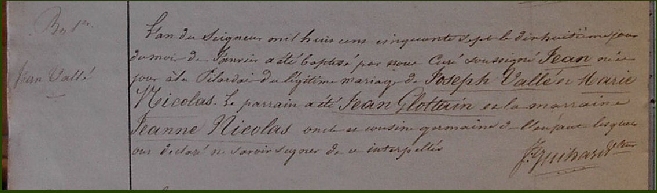 Bap.
Jean Vallé
L'an du Seigneur mil huit cent cinquante sept le dixhuitième jour
du mois de Janvier a été baptisé par nous Curé soussigné Jean né ce
jour à la du légitime mariage de Joseph Vallé & Marie
Nicolas. Le parrain a été Jean Glottain et la marraine
Jeanne Nicolas oncle et cousine germaine de l'enfant lesquels
ont déclaré ne savoir signer de ce interpellés
J. Guihard